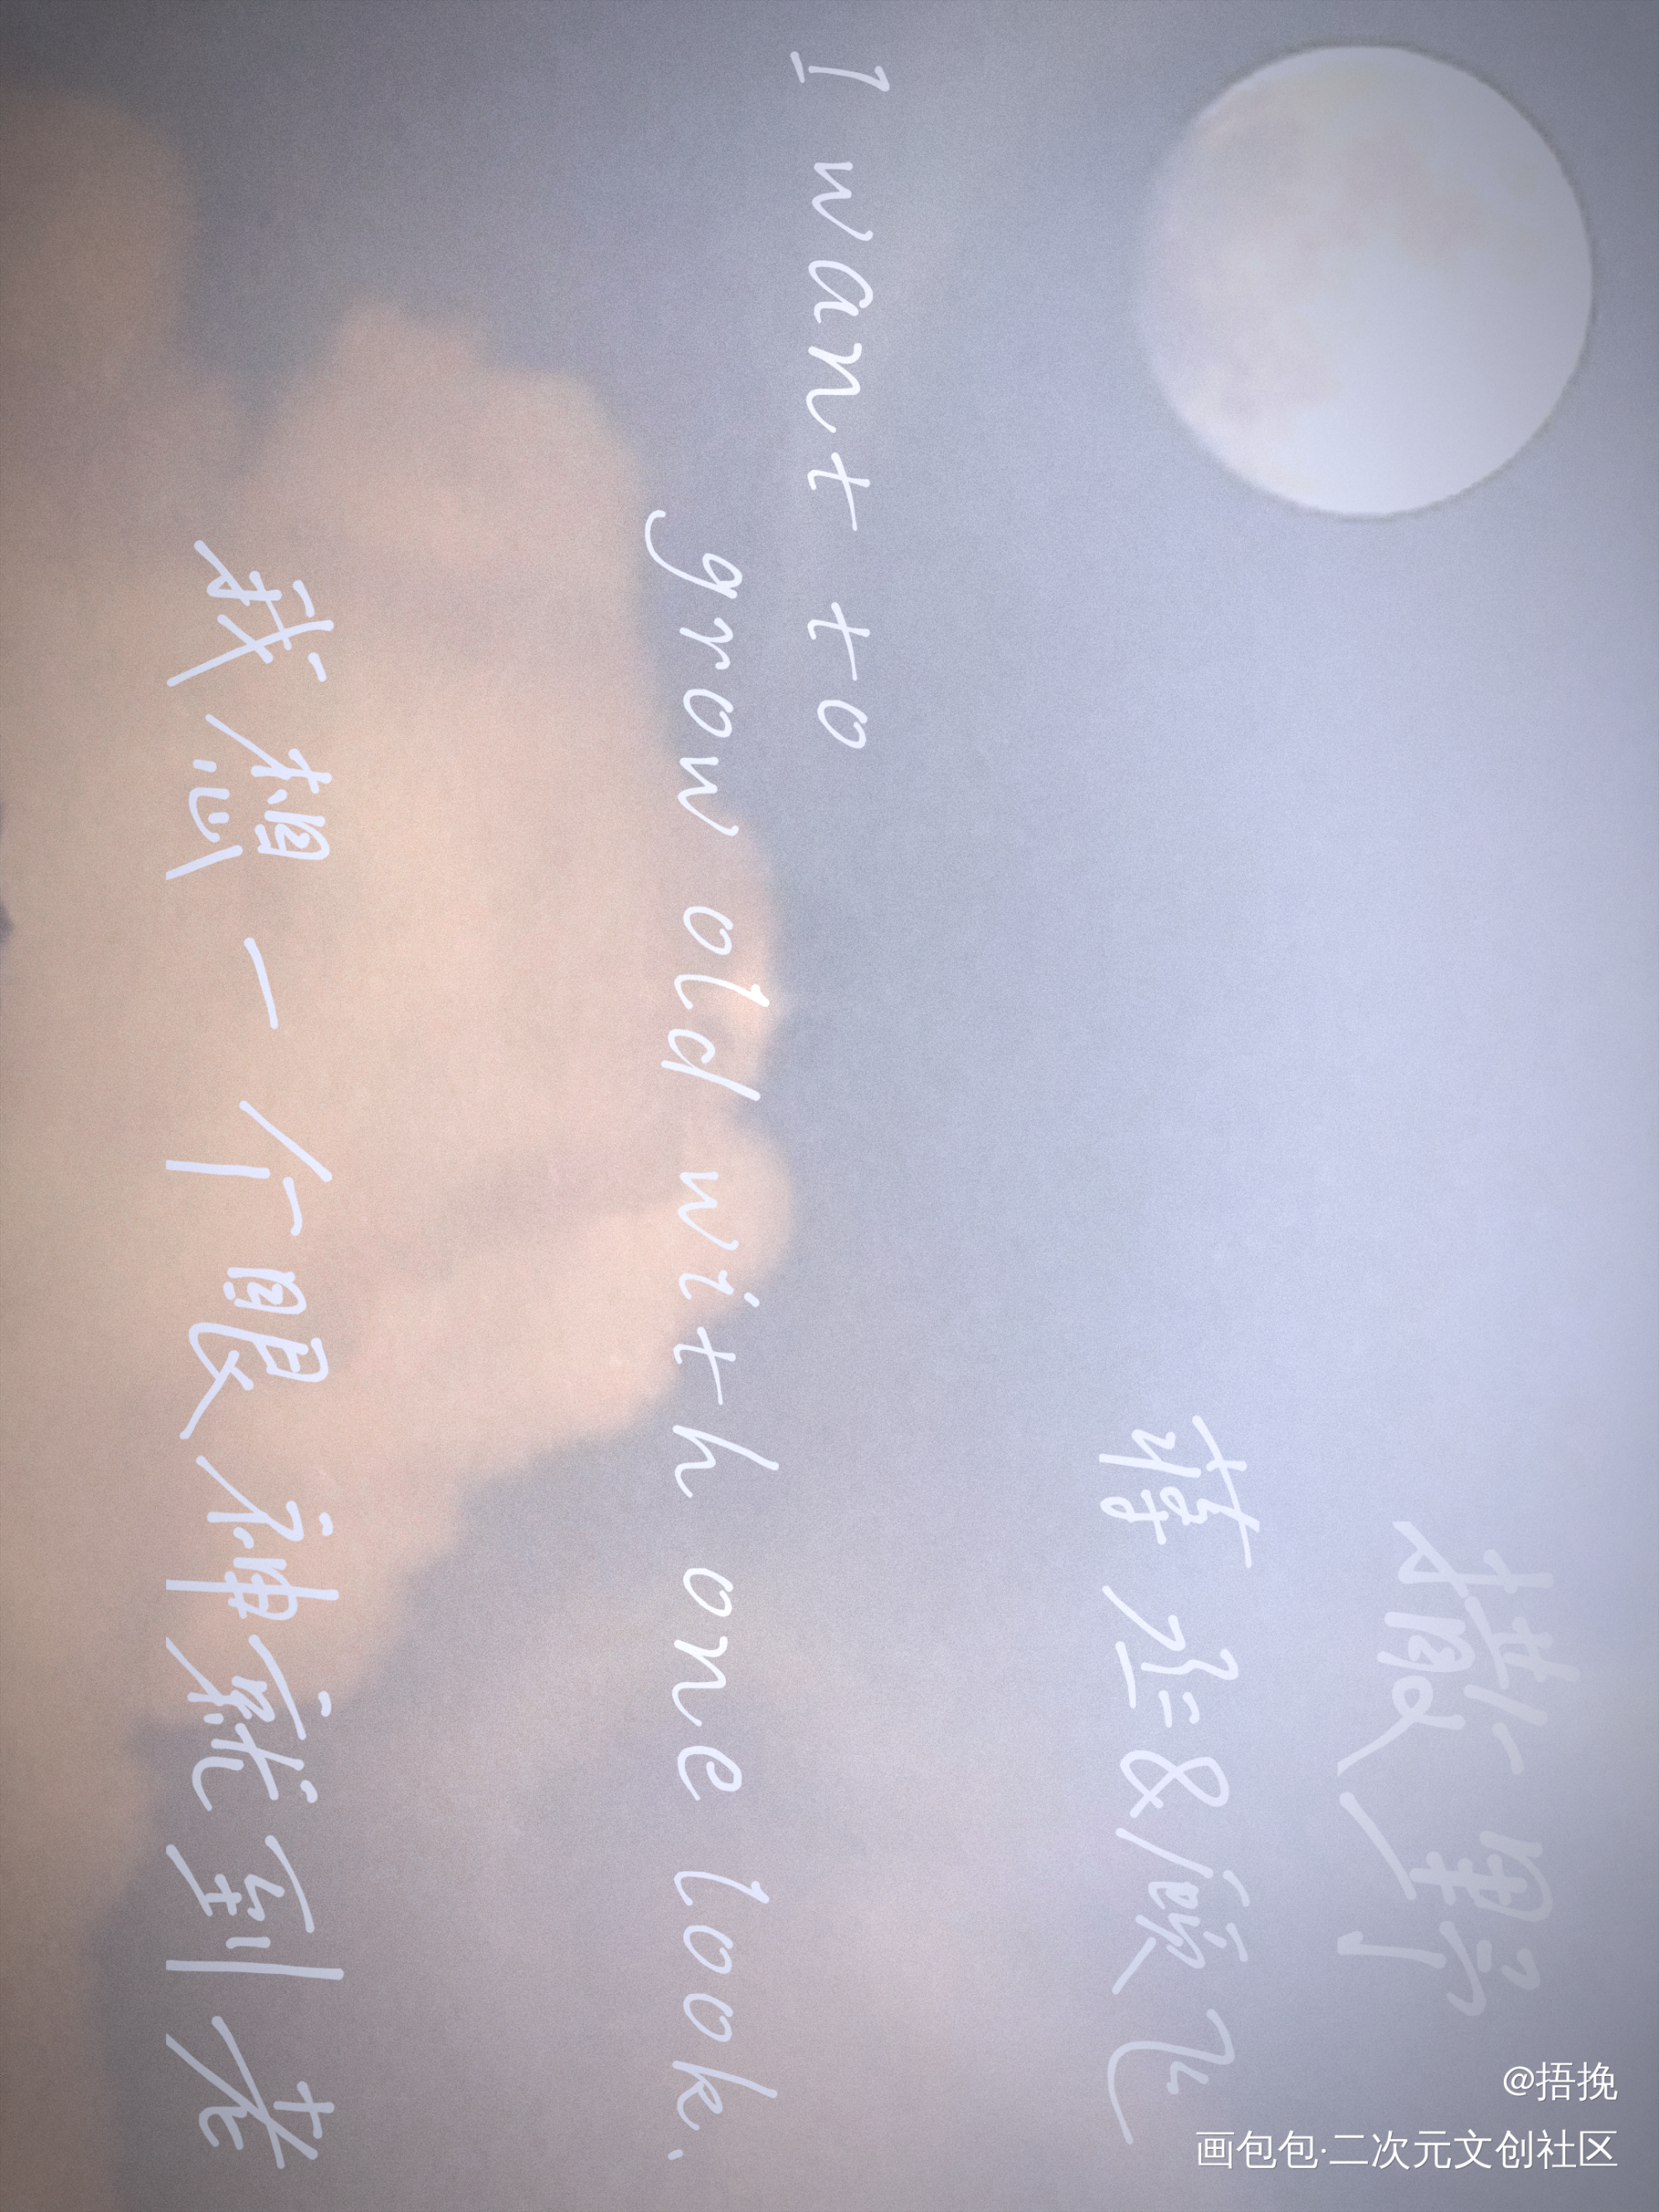 撒野
蒋丞&顾飞
I want to
grow old with one look.
我想一个眼神就到老
@捂挽
画包包·二次元文创社区